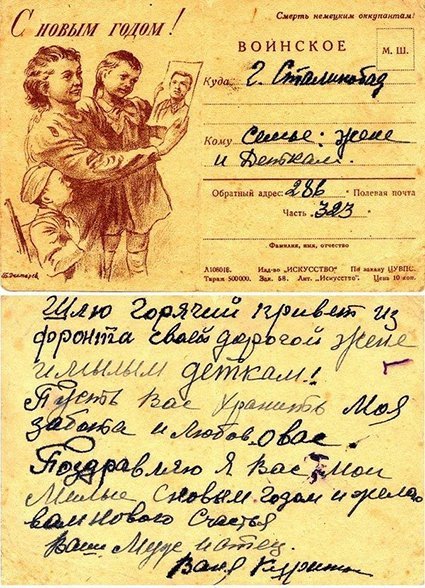 С НОВЫМ ГОДОМ!
Смерть немецким оккупантам!
ВОИНСКОЕ
М. Ш.
Куда г. Сталинабад
Кому Семье: жене
и Деткам.
Обратный адрес: 286 Полевая почта
Часть 323
Фамилия, имя, отчество
А106018. Изд-во „ИСКУССТВО“ По заказу ЦУВПС.
Тираж 500000. Зак. 58. Лит. „Искусство“. Цена 10 коп.
Шлю горячий привет из
фронта своей дорогой жене
и милым деткам!
Пусть Вас хранить моя
забота и любов о вас.
Поздравляю я Вас мои
милые с новым годом и желаю
вам нового счастья
Ваш муж и отец.
Ваня